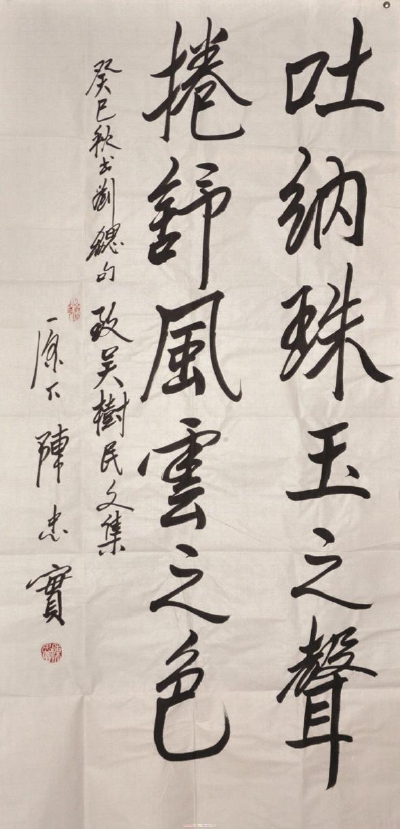 吐納珠玉之聲
捲舒風雲之色
癸巳秋书劉勰句 致吴樹民文集
原下 陳忠實